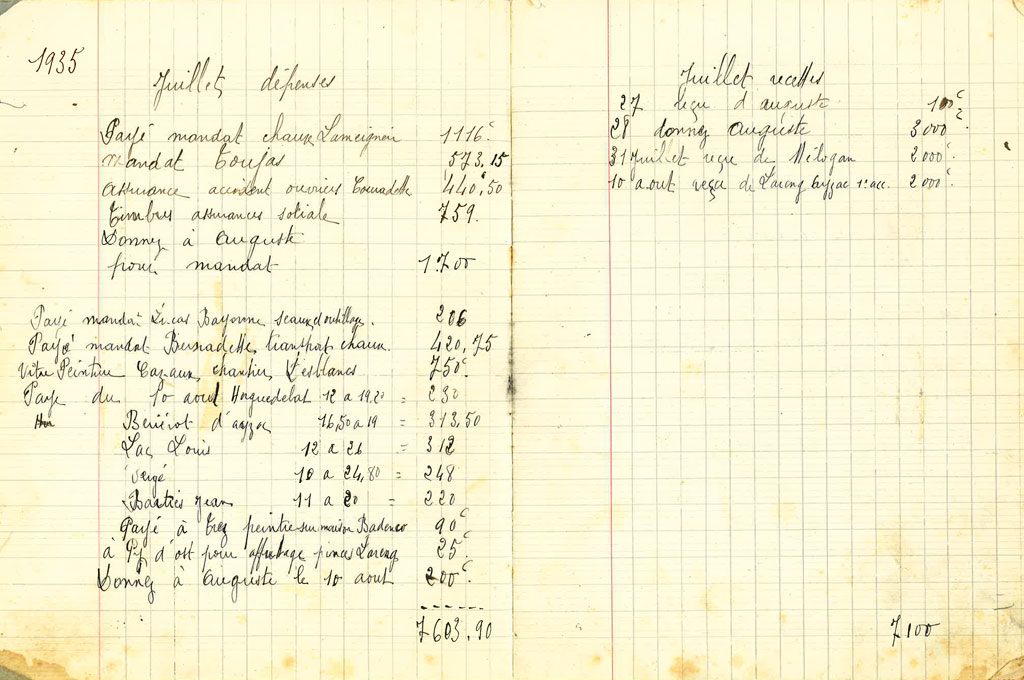 1935
Juillet dépenses
Payé mandat chaux Lameignon 1116c
Mandat Toujas 573,15
Assurance accident ouvriers Tournadette 440c,50
Timbres assurances sotiale 759.
Donnez à Auguste
pour mandat 1.700
Payé mandat Lucas Bayonne seaux d'outillage. 206
Payé mandat Bernadette, transport chaux. 420,75
Vitre Peinture Cazaux, chantier Lesblancs 750c
Paye du 10 aout Horguedebat 12 a 19.20 = 230
Benérot d'ayzac 16,50 a 19 = 313,50
Lac Louis 12 a 26 = 312
Vergé 10 a 24,80 = 248
Barties jean 11 a 20 = 220
Payé à Trez peintre sur maison Badence 90c
à d'ost pour affutage pinces Lareng 25c.
Donnez à Auguste le 10 aout 200c.
7603.90
Juillet recettes
27 reçu d'auguste 100c
28 donnez Auguste 3000c.
31 Juillet reçu de Mélogan 2000c.
10 aout reçu de Lareng Ayzac 1er acc. 2000c.
7100